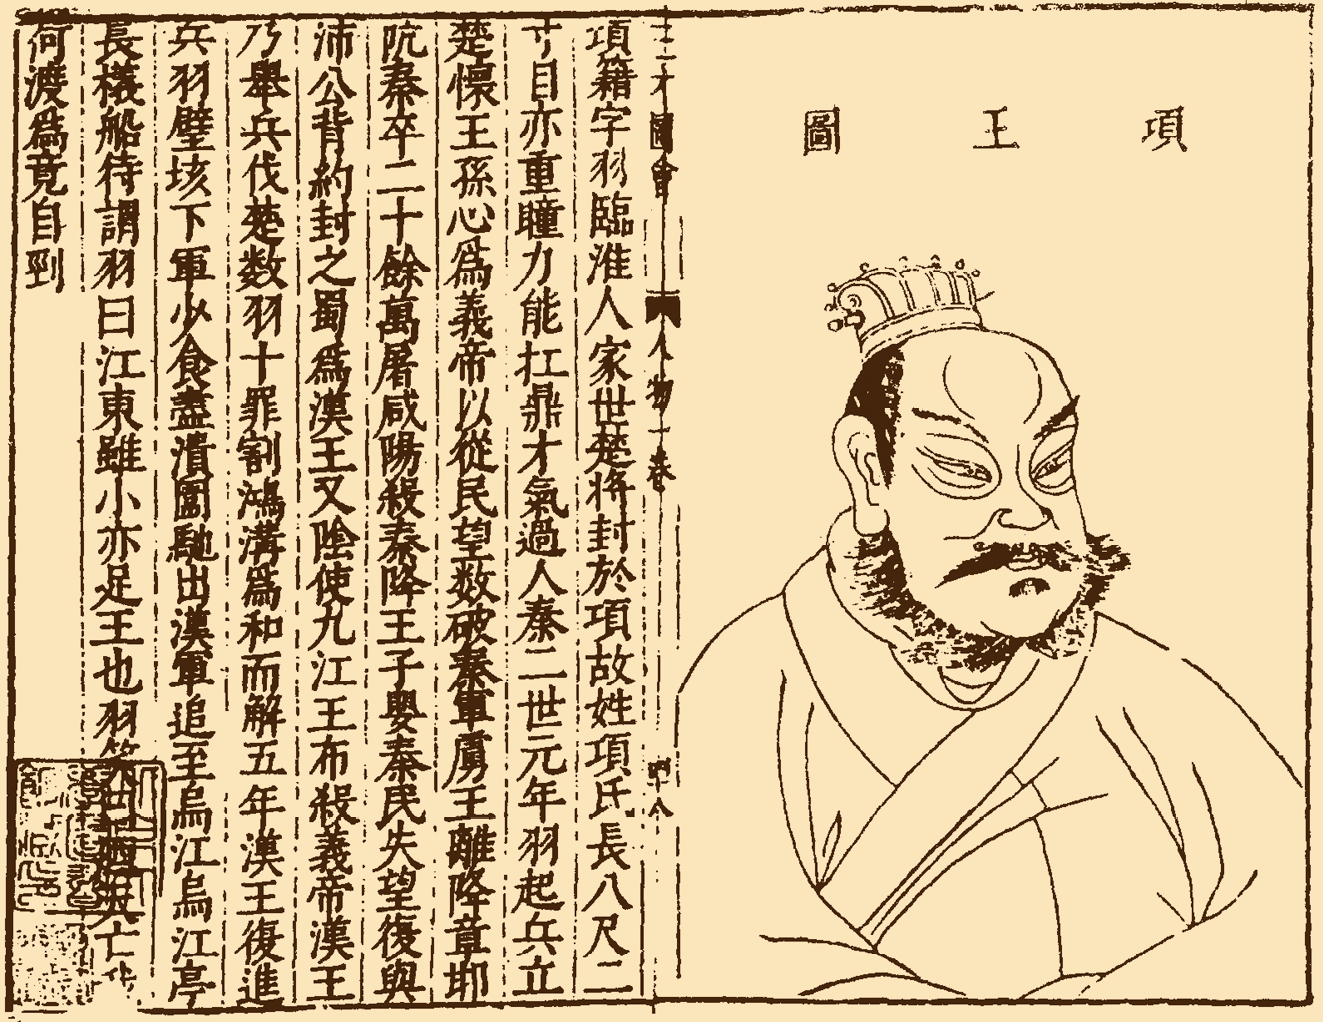 項王圖
三才圖會
人物一卷
四十八
項籍字羽臨淮人家世楚將封於項故姓項氏長八尺二
寸目亦重瞳力能扛鼎才氣過人秦二世元年羽起兵立
楚懷王孫心爲義帝以從民望数破秦軍虜王離降章邯
阬秦卒二十餘萬屠咸陽殺秦降王子嬰秦民失望復與
沛公背約封之蜀爲漢王又陰使九江王布殺義帝漢王
乃舉兵伐楚数羽十罪割鴻溝爲和而解五年漢王復進
兵羽壁垓下軍少食盡潰圍馳出漢軍追至烏江烏江亭
長檥船待謂羽曰江東雖小亦足王也羽笑曰亡我
何渡爲竟自剄